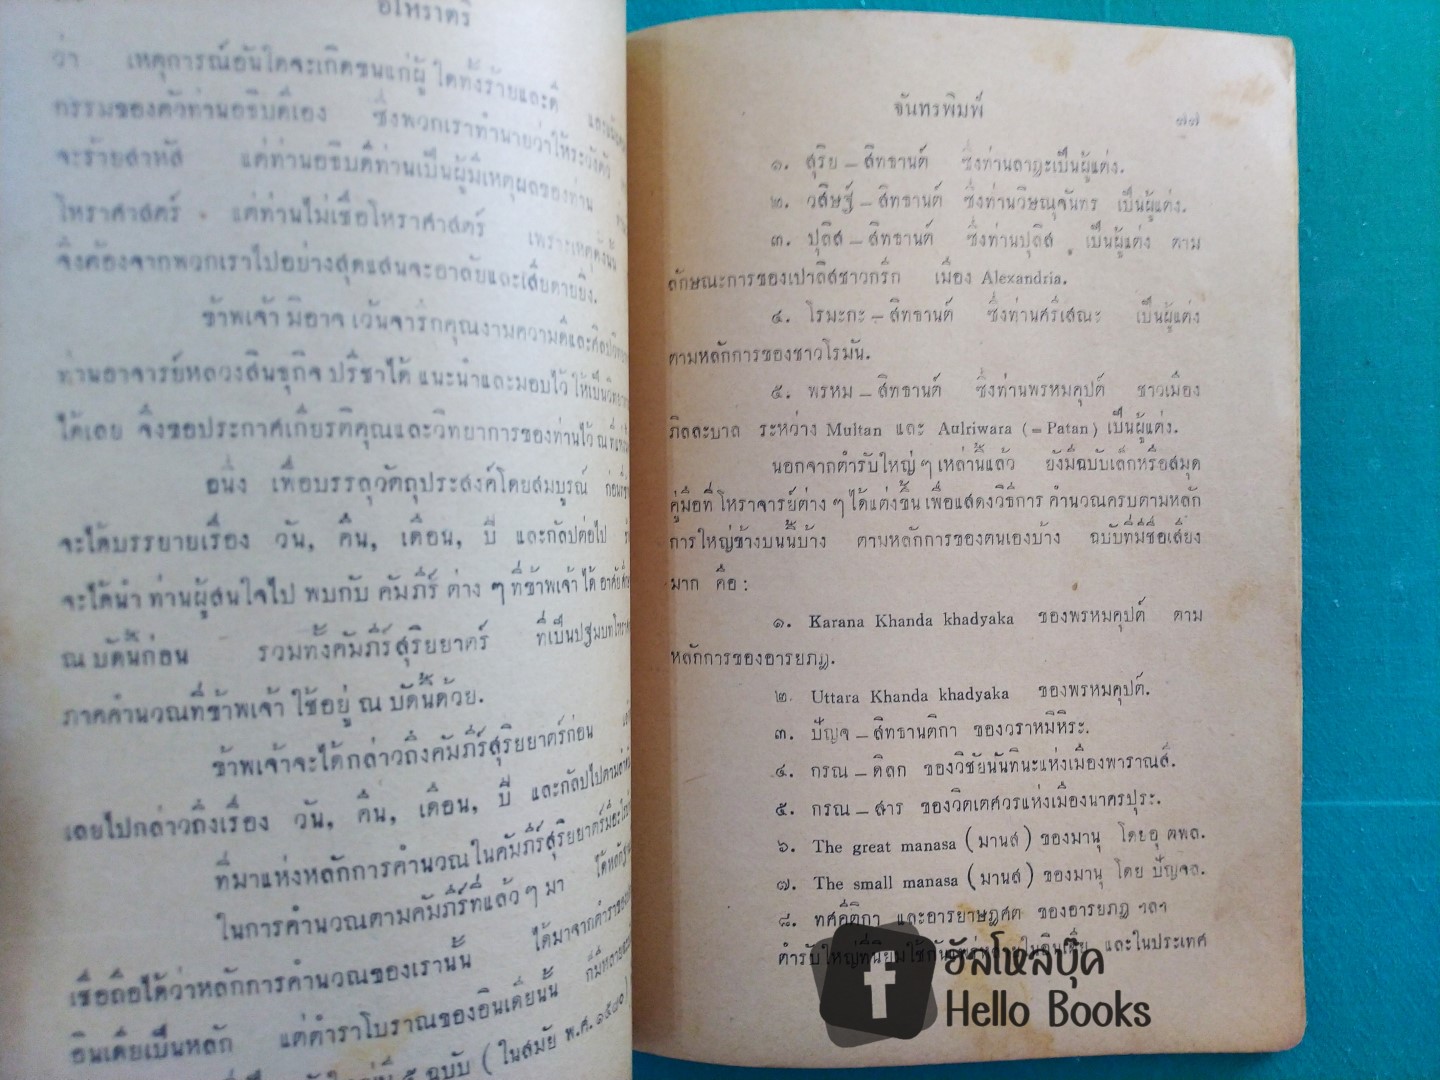 อโหราตรี
ว่า เหตุการณ์อันใดจะเกิดขึ้นแก่ผู้ใดทั้งร้ายและดี
กรรมของตัวท่านอธิบดีเอง ซึ่งพวกเราทำนายว่าให้ระวังตัว
จะร้ายสาหัส แต่ท่านอธิบดีท่านเป็นผู้มีเหตุผลของท่าน
โหราศาสตร์ แต่ท่านไม่เชื่อโหราศาสตร์ เพราะเหตุดังนั้น
จึงต้องจากพวกเราไปอย่างสุดแสนจะอาลัยและเสียดายยิ่ง.
ข้าพเจ้ามิอาจเว้นจารึกคุณงามความดีและศิลปวิทยา
ท่านอาจารย์หลวงสินธุกิจปรีชาได้แนะนำและมอบไว้ให้เป็นวิทยา
ได้เลย จึงขอประกาศเกียรติคุณและวิทยาการของท่านไว้ ณ ที่
อนึ่ง เพื่อบรรลุวัตถุประสงค์โดยสมบูรณ์ ก่อนที่
จะได้บรรยายเรื่อง วัน, คืน, เดือน, ปี และกัลปต่อไป
จะได้นำท่านผู้สนใจไปพบกับคัมภีร์ต่าง ๆ ที่ข้าพเจ้าได้อาศัย
ณ บัดนี้ก่อน รวมทั้งคัมภีร์สุริยยาตร์ ที่เป็นปฐมบท
ภาคคำนวณที่ข้าพเจ้าใช้อยู่ ณ บัดนี้ด้วย.
ข้าพเจ้าจะได้กล่าวถึงคัมภีร์สุริยยาตร์ก่อน
เลยไปกล่าวถึงเรื่อง วัน, คืน, เดือน, ปี และกัลปไปตามลำดับ
ที่มาแห่งหลักการคำนวณในคัมภีร์สุริยยาตร์มีอะไร
ในการคำนวณตามคัมภีร์ที่แล้วๆ มา ได้หลักฐาน
เชื่อถือได้ว่าหลักการคำนวณของเรานั้น ได้มาจากตำราของ
อินเดียเป็นหลัก แต่ตำราโบราณของอินเดียนั้น ก็มีหลาย
๕ ฉบับ (ในสมัย พ.ศ. ๑๕๘๐)
จันทรพิมพ์ ๗๗
๑. สุริย – สิทธานต์ ซึ่งท่านลาฏะเป็นผู้แต่ง.
๒. วสิษฐ์ – สิทธานต์ ซึ่งท่านวิษณุจันทร เป็นผู้แต่ง.
๓. ปุลิส – สิทธานต์ ซึ่งท่านปุลิส เป็นผู้แต่ง ตาม
ลักษณะการของเปาลิสชาวกรีก เมือง Alexandria.
๔. โรมะกะ – สิทธานต์ ซึ่งท่านศรีเสณะ เป็นผู้แต่ง
ตามหลักการของชาวโรมัน.
๕. พรหม – สิทธานต์ ซึ่งท่านพรหมคุปต์ ชาวเมือง
ภิลละบาล ระหว่าง Multan และ Aulriwara (= Patan) เป็นผู้แต่ง.
นอกจากตำรับใหญ่ ๆ เหล่านี้แล้ว ยังมีฉบับเล็กหรือสมุด
คู่มือที่โหราจารย์ต่าง ๆ ได้แต่งขึ้น เพื่อแสดงวิธีการคำนวณครบตามหลัก
การใหญ่ข้างบนนี้บ้าง ตามหลักการของตนเองบ้าง ฉบับที่มีชื่อเสียง
มาก คือ :
๑. Karana Khanda khadyaka ของพรหมคุปต์ ตาม
หลักการของอารยภฏ.
๒. Uttara Khanda khadyaka ของพรหมคุปต์.
๓. ปัญจ – สิทธานติกา ของวราหมิหิระ.
๔. กรณ – ติลก ของวิชัยนันทินะแห่งเมืองพาราณสี.
๕. กรณ – สาร ของวิตเตศวรแห่งเมืองนาครปุระ.
๖. The great manasa ( มานส ) ของมานุ โดยอุตพล.
๗. The small manasa ( มานส ) ของมานุ โดย ปัญจล.
๘. ทศคีติกา และอารยาษฎศต ของอารยภฏ ฯลฯ
ตำรับใหญ่ที่นิยมใช้กันแพร่หลายในอินเดีย และในประเทศ
f
ฮัลโหลบุ๊ค
Hello Books